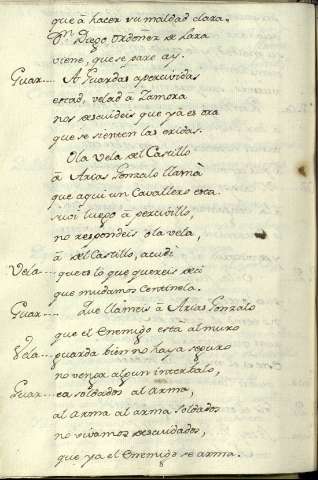 que â hacer su maldad clara.
Dn. Diego Ordoñez de Lara
viene, que se pare ay.
Guar.... A Guardas apercividas
estad, velad â Zamora
nos descuideis que ya es ora
que se sienten las eridas.
Ola Vela del Castillo
â Arias Gonzalo llamà
que aqui un Cavallero esta.
suvi luego â percivillo,
no respondeis ola vela,
â del Castillo, acudi
Vela.... que es lo que quereis deci
que mudamos Centinela.
Guar.... Que llameis â Arias Gonzalo
que el Enemigo està al muro
Vela.. guarda bien no haya seguro
no venga algun intervalo,
Guar... ea soldados al arma,
al arma al arma soldados
no vivamos descuidados,
que ya el Enemigo se arma.
8